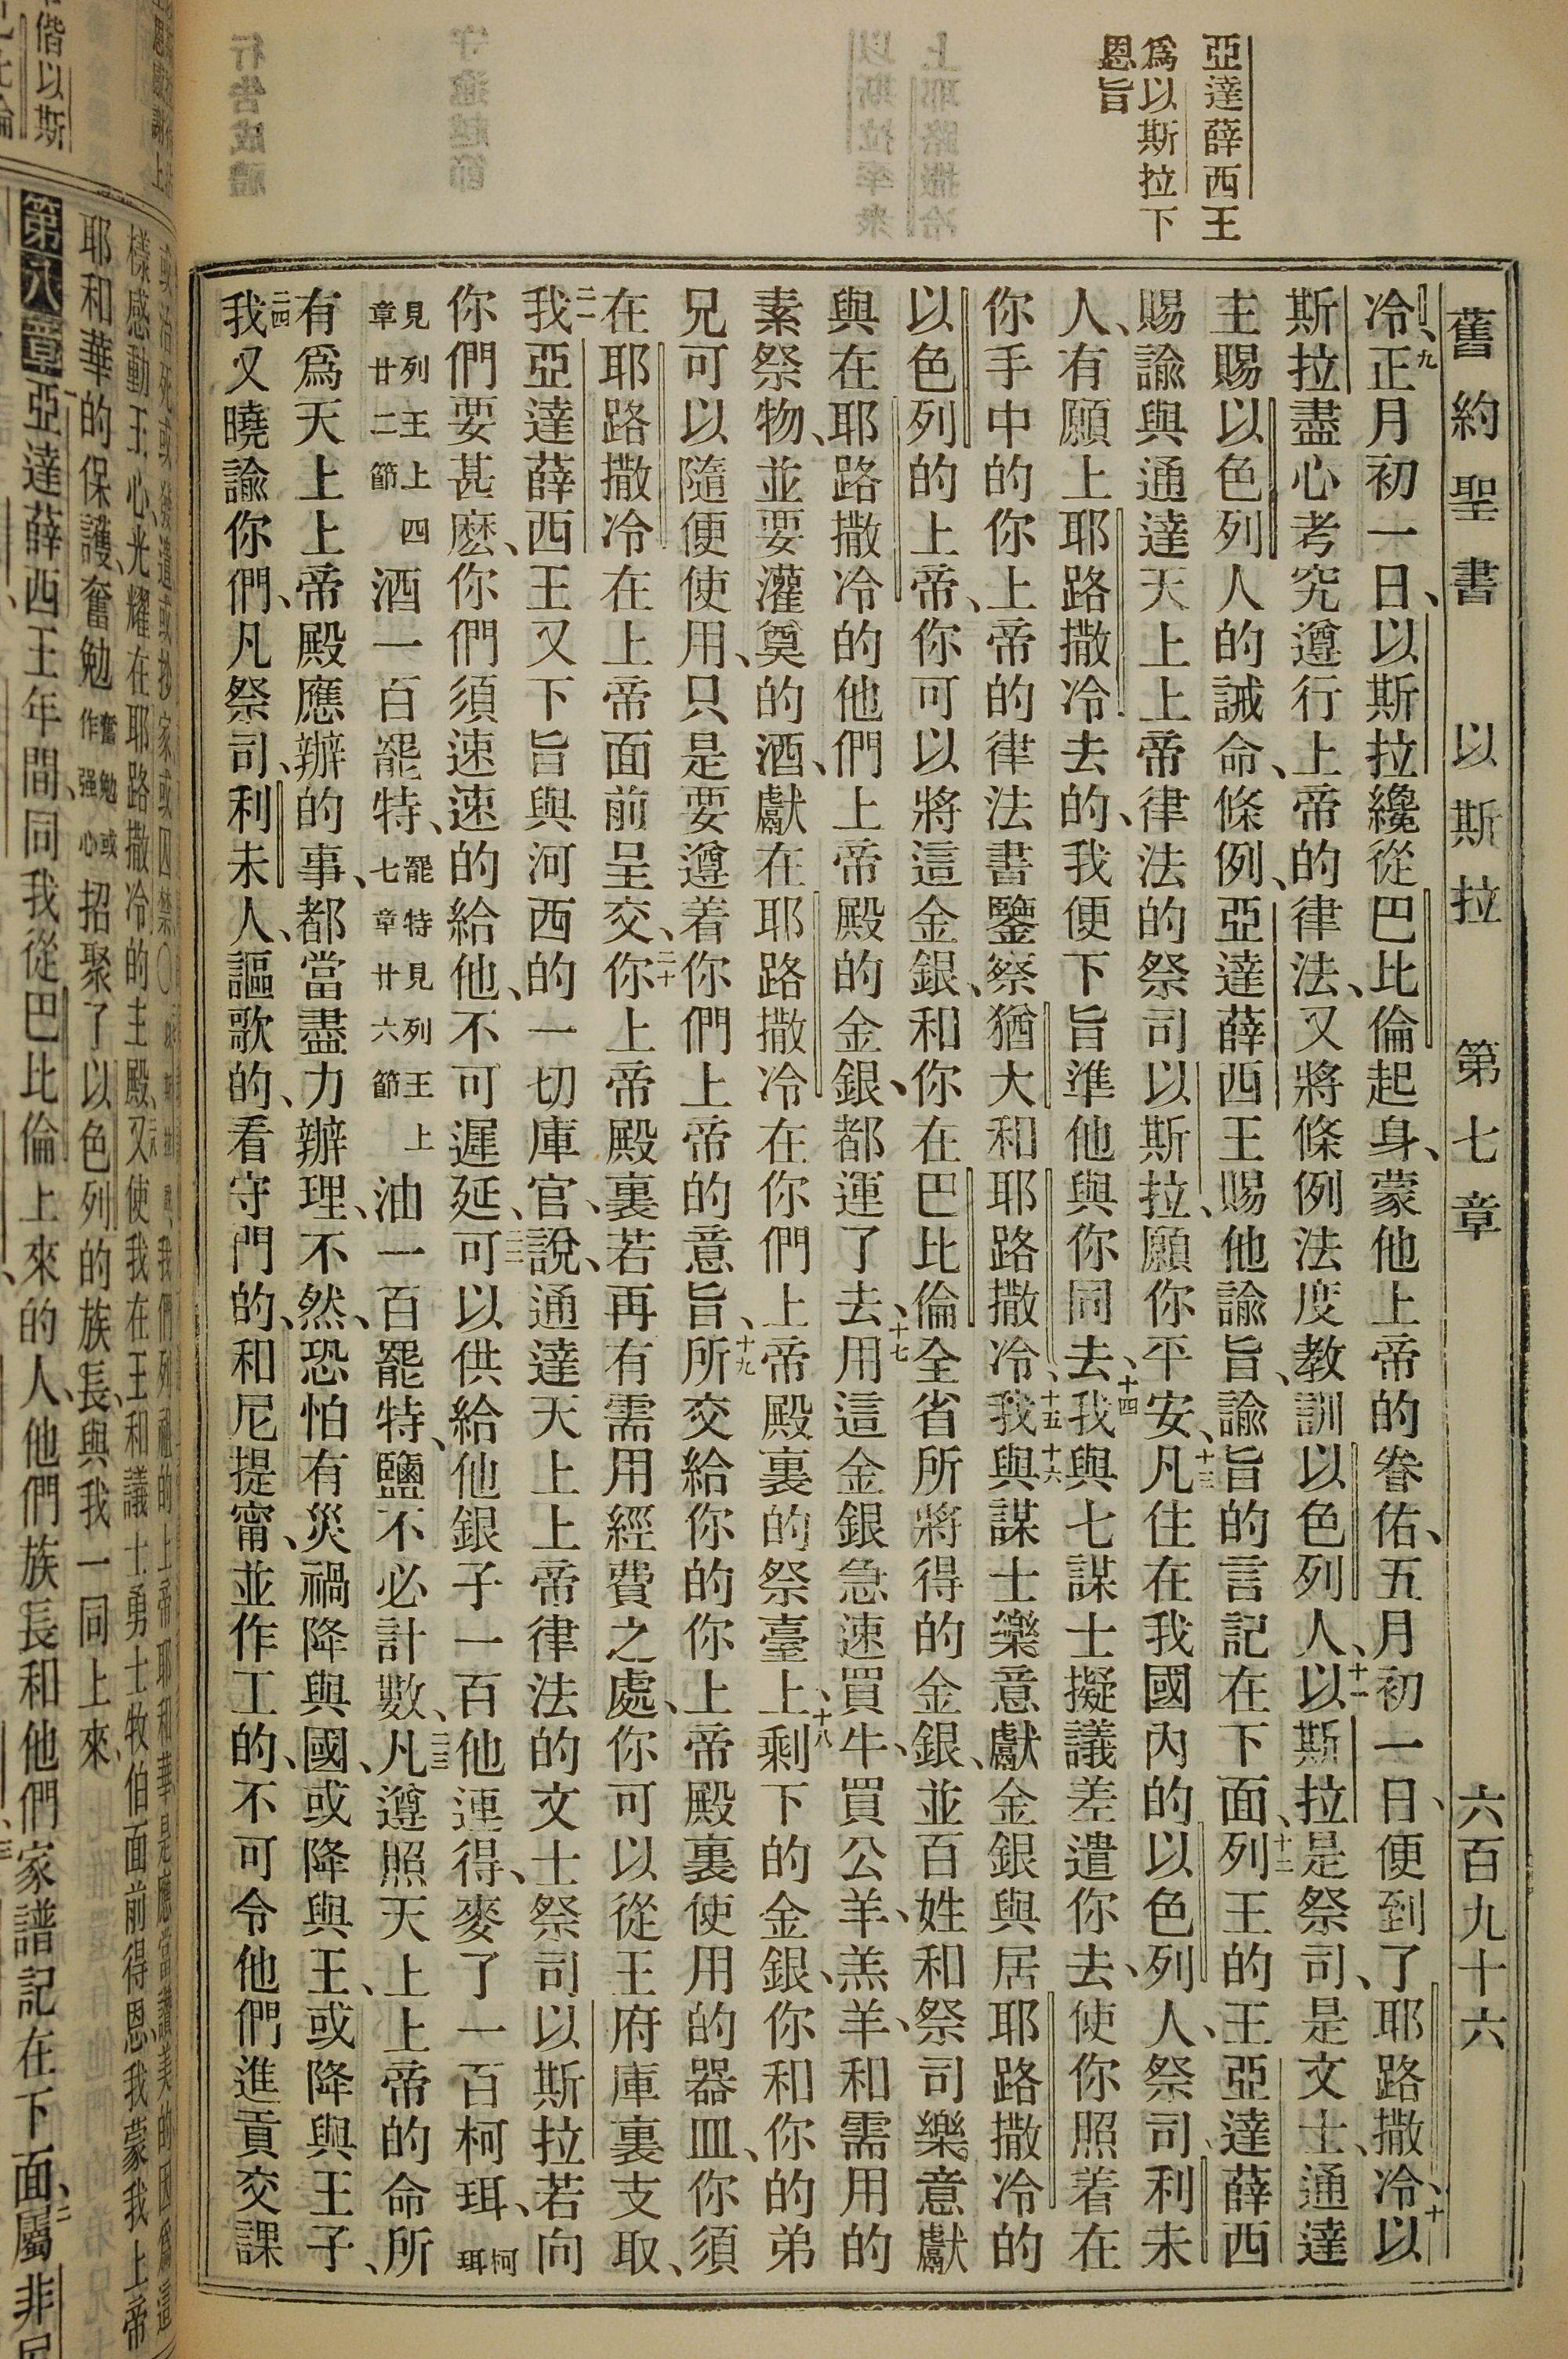 亞達薛西王
爲以斯拉下
恩旨
舊約聖書 以斯拉 第七章 六百九十六
冷、九正月初一日、以斯拉纔從巴比倫起身、蒙他上帝的眷佑、五月初一日、便到了耶路撒冷、十以
斯拉盡心考究遵行上帝的律法、又將條例法度教訓以色列人、十一以斯拉是祭司、是文士、通達
主賜以色列人的誡命、條例、亞達薛西王賜他諭旨、諭旨的言記在下面、十二列王的王亞達薛西
賜諭與通達天上上帝律法的祭司以斯拉、願你平安、十三凡住在我國內的以色列人、祭司、利未
人、有願上耶路撒冷去的、我便下旨準他與你同去、十四我與七謀士擬議差遣你去、使你照着在
你手中的你上帝的律法書鑒察猶大和耶路撒冷、十五十六我與謀士樂意獻金銀與居耶路撒冷的
以色列的上帝、你可以將這金銀、和你在巴比倫全省所將得的金銀、並百姓和祭司樂意獻
與在耶路撒冷的他們上帝殿的金銀、都運了去、十七用這金銀急速買牛、買公羊、羔羊、和需用的
素祭物、並要灌奠的酒、獻在耶路撒冷在你們上帝殿裏的祭臺上、十八剩下的金銀、你和你的弟
兄可以隨便使用、只是要遵着你們上帝的意旨、十九所交給你的你上帝殿裏使用的器皿、你須
在耶路撒冷在上帝面前呈交、二十你上帝殿裏若再有需用經費之處、你可以從王府庫裏支取、
二一我亞達薛西王又下旨與河西的一切庫官、說、通達天上上帝律法的文士祭司以斯拉若向
你們要甚麽、你們須速速的給他、不可遲延、二二可以供給他銀子一百他連得、麥了一百柯珥、柯珥
見列王上四章廿二節酒一百罷特、罷特見列王上七章廿六節油一百罷特、鹽不必計數、二三凡遵照天上上帝的命所
有爲天上上帝殿應辦的事、都當盡力辦理、不然、恐怕有災禍降與國、或降與王、或降與王子、
二四我又曉諭你們、凡祭司、利未人、謳歌的、看守門的、和尼提甯、並作工的、不可令他們進貢交課
樣感動王心、光耀在耶路撒冷的主殿、又使我在王和議士勇士牧伯面前得恩、我蒙我上帝
耶和華的保護、奮勉奮勉或作强心招聚了以色列的族長、與我一同上來、
第八章 亞達薛西王年間、同我從巴比倫上來的人、他們族長和他們家譜記在下面、二屬非尼